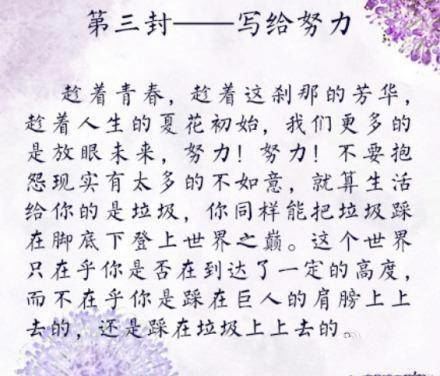 第三封——写给努力
趁着青春，趁着这刹那的芳华，
趁着人生的夏花初始，我们更多的
是放眼未来，努力！努力！不要抱
怨现实有太多的不如意，就算生活
给你的是垃圾，你同样能把垃圾踩
在脚底下登上世界之巅。这个世界
只在乎你是否在到达了一定的高度，
而不在乎你是踩在巨人的肩膀上上
去的，还是踩在垃圾上上去的。